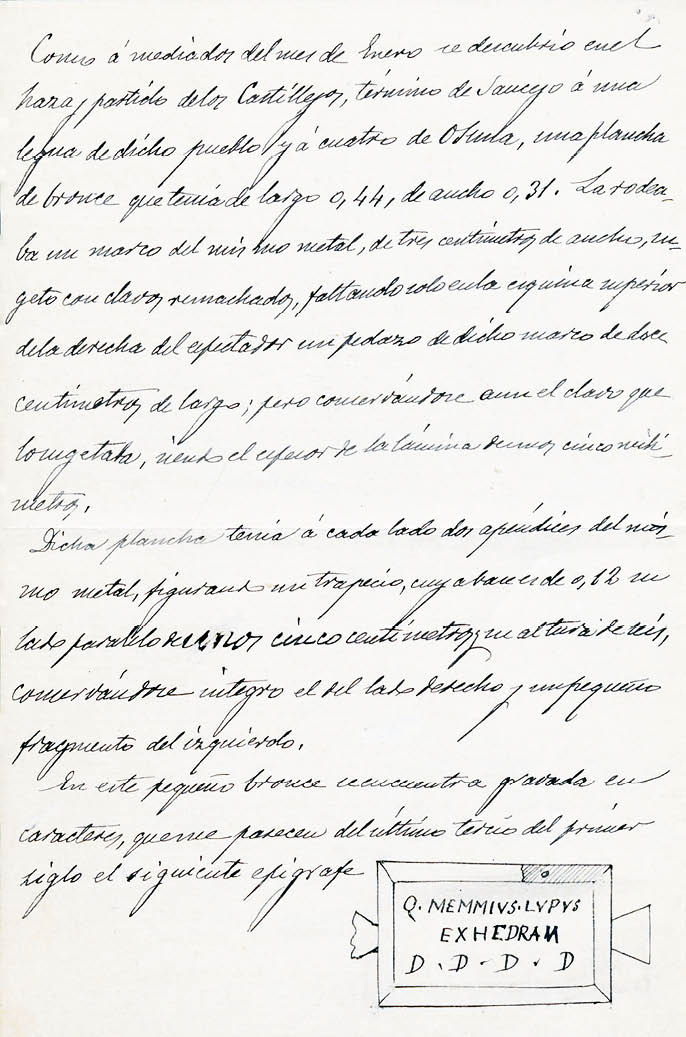 Como á mediados del mes de Enero se descubrió en el
haza y partido de los Castillejos, término de Saucejo á una
legua de dicho pueblo y á cuatro de Osuna, una plancha
de bronce que tenía de largo 0,44, de ancho 0,31. La rodea-
ba un marco del mismo metal, de tres centímetros de ancho, su-
geto con clavos remachados, faltando solo en la esquina superior
de la derecha del espectador un pedazo de dicho marco de doce
centímetros de largo; pero conservándose aun el clavo que
lo sugetaba, siendo el espesor de la lámina de unos cinco milí-
metros.
Dicha plancha tenía á cada lado dos apéndices del mis-
mo metal, figurando un trapecio, cuya base es de 0,12 su
lado paralelo de unos cinco centímetros y su altura de seis,
conservándose integro el del lado derecho y un pequeño
fragmento del izquierdo.
En este pequeño bronce se encuentra gravada en
caracteres, que me parecen del último tercio del primer
siglo el siguiente epigrafe
Q. MEMMIVS. LVPVS
EXHEDRAM
D. D. D. D